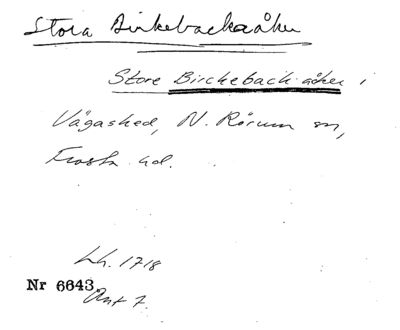 Stora Birkebacksåker
Store Bircheback åker i
Vågashed, N. Rörum sn,
Frosta hd.
Lh. 1718
Nr 6643
Ant 7.